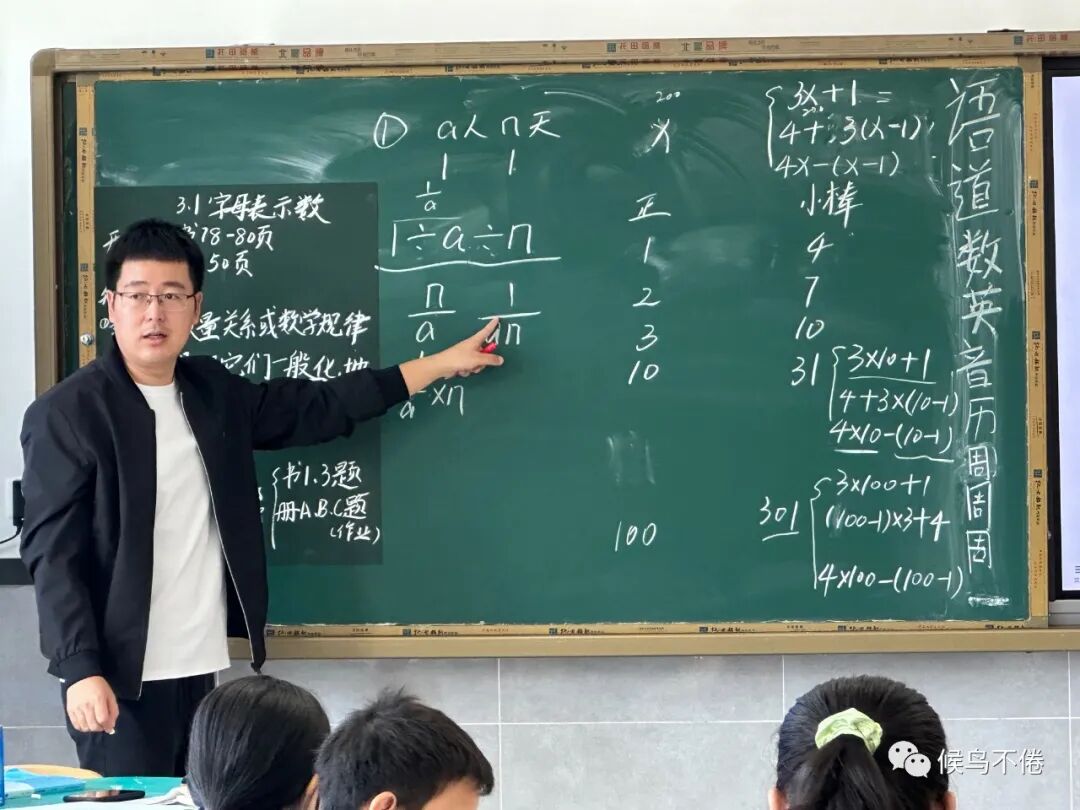 3.1 字母表示数
书78-80页
50页
量关系或数学规律
它们一般化.地
书1.3题
册A.B.C题
(作业)
① a人 n天
1 1
1/a
1÷a÷n
n/a 1/an
×n
200
x
正
1
2
3
10
100
小棒
4
7
10
31
301
3x+1=
4+3(x-1)
4x-(x-1)
3×10+1
4+3×(10-1)
4×10-(10-1)
3×100+1
(100-1)×3+4
4×100-(100-1)
语道数英音历周周周
候鸟不倦